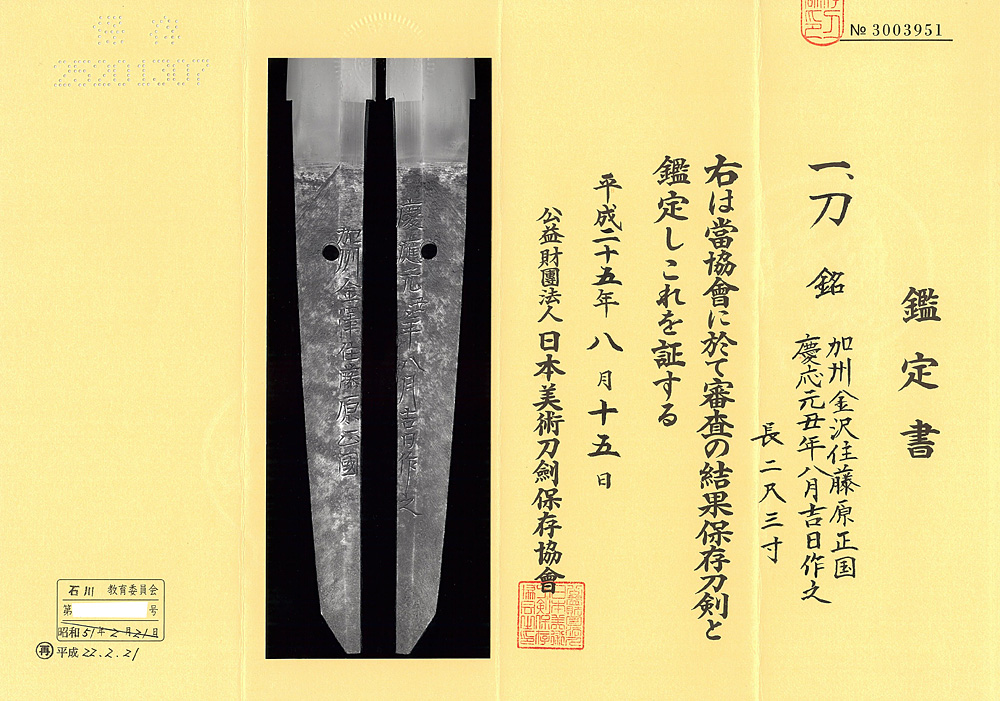 № 3003951
鑑定書
一、刀 銘
加州金沢住藤原正国
慶応元丑年八月吉日作之
長二尺三寸
右は當協會に於て審査の結果保存刀剣と
鑑定しこれを証する
平成二十五年八月十五日
公益財團法人日本美術刀劍保存協會
慶應元丑年八月吉日作之
加州金澤住藤原正國
保存
25201307
石川 教育委員会
第 号
昭和51年2月21日
再 平成22.2.21